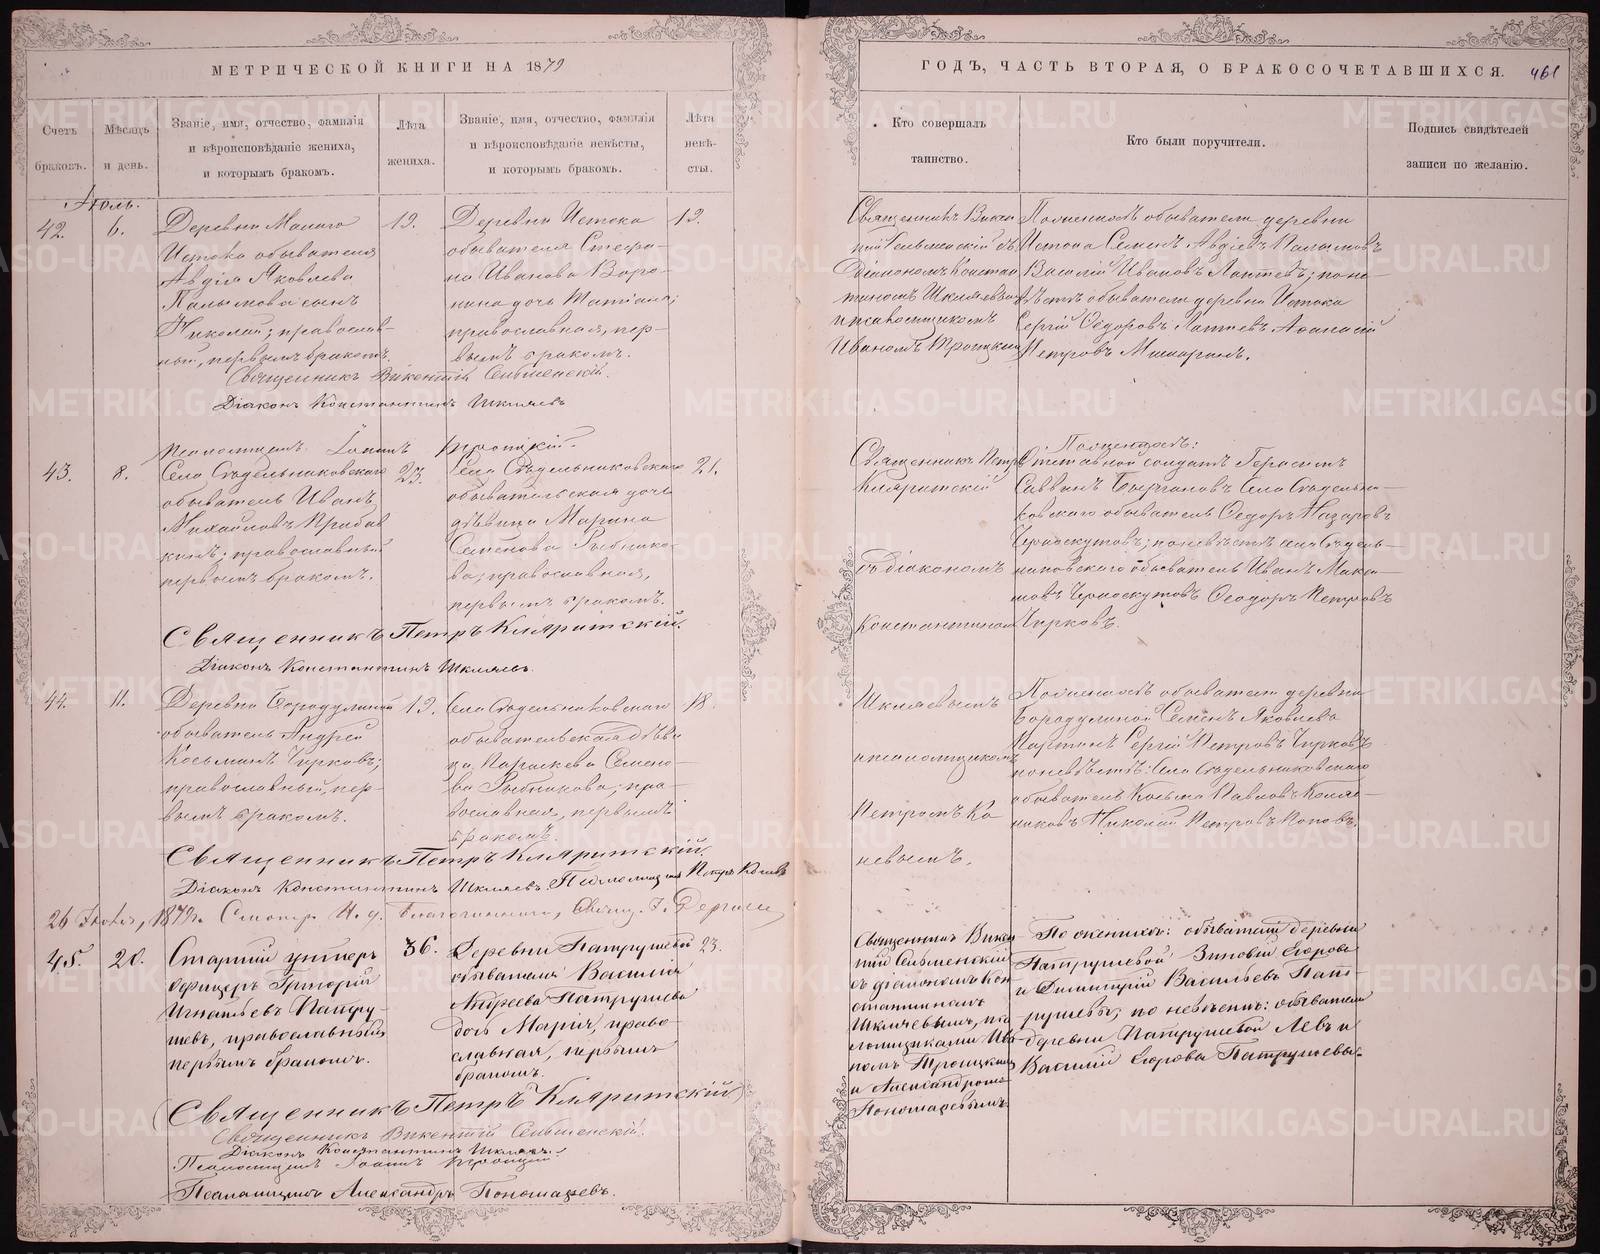 МЕТРИЧЕСКОЙ КНИГИ НА 1879
Счетъ браковъ.
Мѣсяцъ и день.
Званіе, имя, отчество, фамилія и вѣроисповѣданіе жениха, и которымъ бракомъ.
Лѣта жениха.
Званіе, имя, отчество, фамилія и вѣроисповѣданіе невѣсты, и которымъ бракомъ.
Лѣта невѣсты.
Іюль.
42.
6.
Деревни Малаго
Истока обывателя
Авдія Яковлева
Палымова сынъ
Николай; православ-
ный, первымъ бракомъ.
19.
Деревни Истока
обывателя Стефа-
на Иванова Воро-
нина дочь Татіана;
православная, пер-
вымъ бракомъ.
19.
Священникъ Викентій Сельменскій.
Діаконъ Константинъ Шкляевъ
Псаломщикъ Іоаннъ Троицкій.
43.
8.
Села Сѣдельниковскаго
обыватель Иванъ
Михайловъ
православный
первымъ бракомъ.
23.
Села Сѣдельниковскаго
обывательская дочь
дѣвица Марина
Семенова Рыбнико-
ва; православная,
первымъ бракомъ.
21.
Священникъ Петръ Кляритскій.
Діаконъ Константинъ Шкляевъ.
44.
11.
Деревни Бородулиной
обыватель Андрей
Косьминъ Чирковъ;
православный, пер-
вымъ бракомъ.
19.
Села Сѣдельниковскаго
обывательская дѣви
ца, Параскева Семено-
ва Рыбникова; пра-
вославная, первымъ
бракомъ.
18
Священникъ Петръ Кляритскій.
Діаконъ Константинъ Шкляевъ. Псаломщикъ Петръ Коневъ
26 1879 г. Смотр. И. д. благочиннаго, Свящ.
45.
20.
Старшій унтеръ
офицеръ Григорій
Игнатьевъ Патру-
шевъ, православный
первымъ бракомъ.
36.
Деревни Патрушевой
обывателя Василія
Андреева Патрушева
дочь Марія, право-
славная, первымъ
бракомъ.
23.
Священникъ Петръ Кляритскій
Священникъ Викентій Сельменскій.
Діаконъ Константинъ Шкляевъ.
Псаломщикъ Іоаннъ Троицкій.
Псаломщикъ Александръ Пономаревъ.
ГОДЪ, ЧАСТЬ ВТОРАЯ, О БРАКОСОЧЕТАВШИХСЯ.
461
Кто совершалъ таинство.
Кто были поручители.
Подпись свидѣтелей записи по желанію.
Священникъ Викен
тій Сельменскій съ
діакономъ Констан
тиномъ Шкляевымъ
и псаломщикомъ
Иваномъ Троицкимъ
По женихѣ обыватели деревни
Истока Семенъ Авдіевъ Палымовъ
Василій Ивановъ Лаптевъ; по не-
вѣстѣ обыватели деревни Истока
Сергій Ѳедоровъ Лаптевъ, Аѳанасій
Петровъ
Священникъ Петръ
Кляритскій
съ діакономъ
Константиномъ
Шкляевымъ
и псаломщикомъ
Петромъ Ко
невымъ.
По женихѣ:
Отставной солдатъ Герасимъ
Саввинъ Села Сѣдельни-
ковскаго обыватель Ѳедоръ Назаровъ
Черноскутовъ; по невѣстѣ села Сѣдель-
никовскаго обыватель Иванъ
Черноскутовъ Ѳеодоръ Петровъ
Чирковъ.
По женихѣ обыватели деревни
Бородулиной Семенъ Яковлевъ
Сергій Петровъ Чирковъ
по невѣстѣ: Села Сѣдельниковскаго
обыватель Косьма Павловъ
Николай Петровъ Поповъ.
Священникъ Викен
тій Сельменскій
съ діакономъ Кон
стантиномъ
Шкляевымъ, пса
ломщиками Ива
номъ Троицкимъ
и Александромъ
Пономаревымъ
По женихѣ: обыватели деревни
Патрушевой Зиновій Егоровъ
и Димитрій Васильевъ Пат-
рушевы, по невѣстѣ: обыватели
деревни Патрушевой Левъ и
Василій Егоровы Патрушевы.
METRIKI.GASO-URAL.RU